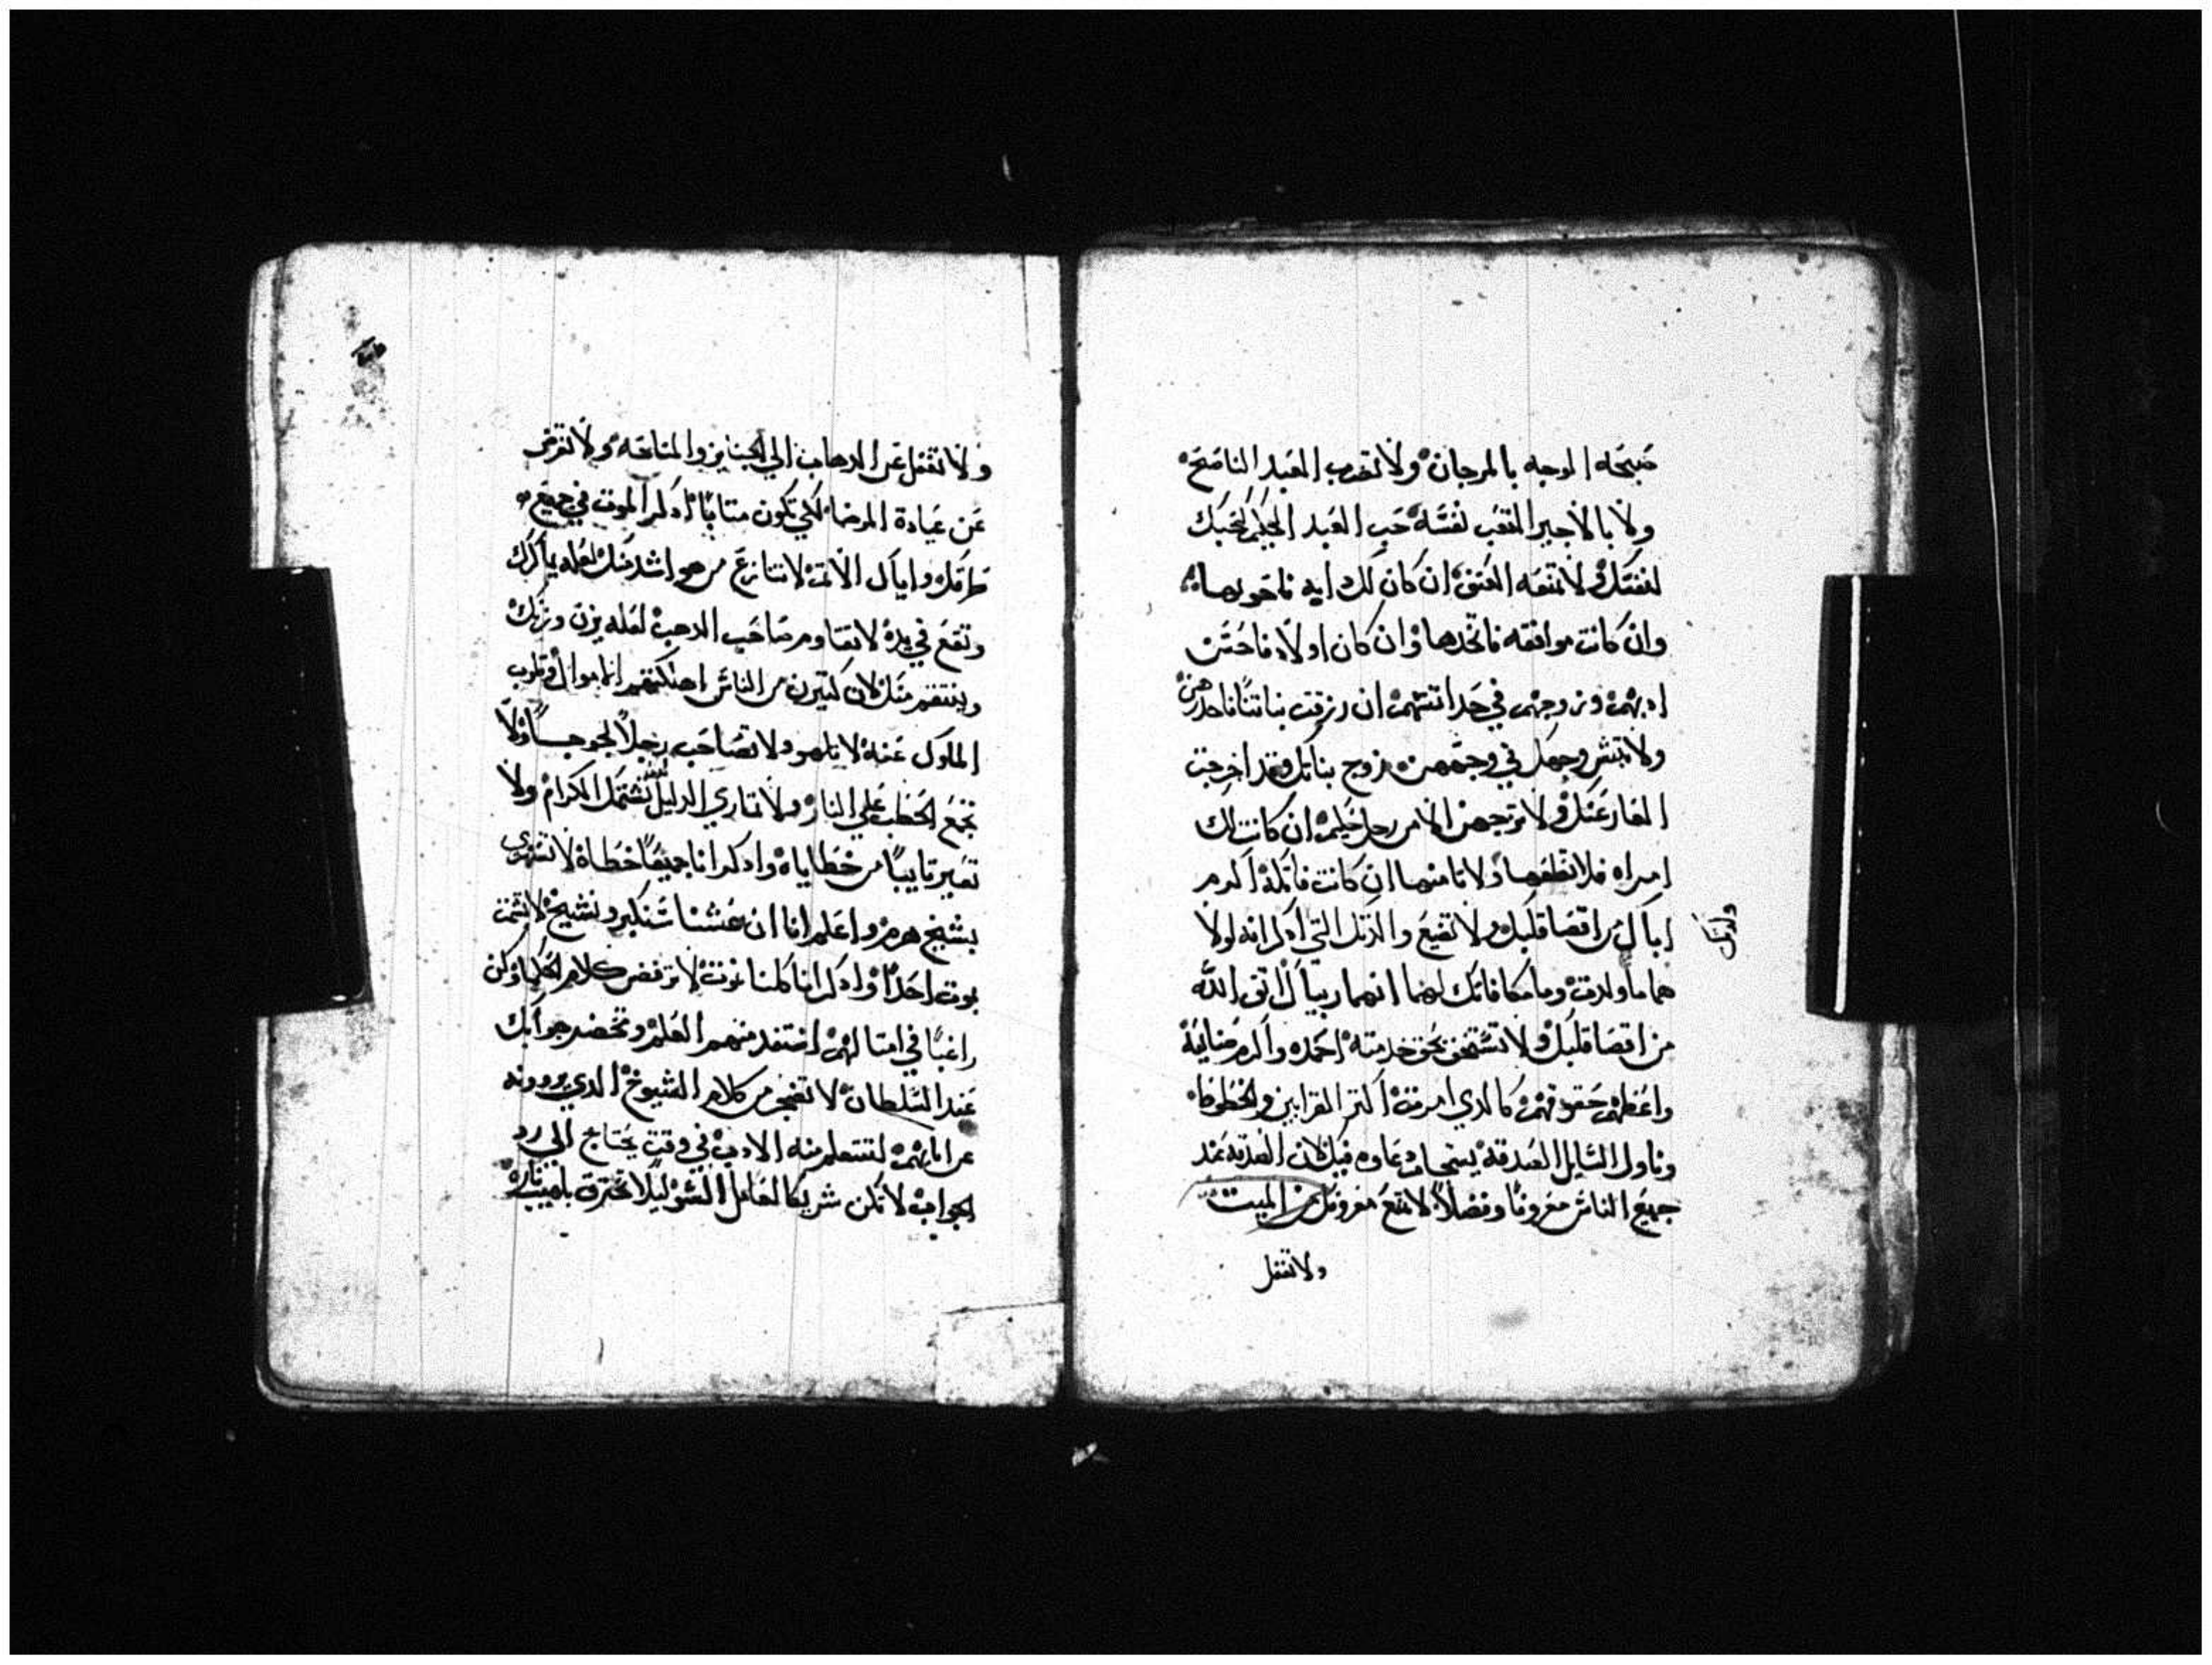 صبحة الوجه بالمرجان ولا تضرب العبد الناصح
ولا بالاجير المتعب نفسه حب العبد الحليم كحبك
لنفسك ولا تمنعه العتق ان كان لك ابه فاحويها
وان كانت موافقه فاتخدها وان كان اولاد فاحسن
ادبهم وزوجهم في حداتتهم ان رزقت بناتا فاحدرهن
ولا تبش وجهك في وجههن زوج بناتك وقد اخرجت
العار عنك ولا تزوجهن الا من رجل حليم ان كانت لك
امراه فلا تطغها ولا تامنها ان كانت قاتله اكرم
اباك من اقصا قلبك ولا تضيع والدتك التي اذكر انه لولا
ولدتك
هما ما ولدت وما مكافاتك لهما انهما ربياك اتق الله
من اقصا قلبك ولا تستخف بحق خدمته احمده واكرم
واعطهم حقوقهم كالدي امرت اكتر القرابين والخطوط
وناول السايل الصدقة يستجاب دعاوه فيك لان الصدقة عند
جميع الناس معروفا وفضلا لا تمنع معروفك من الميت
ولا تغفل
ولا تغفل عن الدهاب الي الجنايز والمناحه ولا تعرض
عن عيادة المرضا لكي تكون متابا اذكر الموت في جميع
طرقك واياك الاتم لا تنازع من هو اشد منك لعله ياركك
وتقع في يده لا تقاوم صاحب الدهب لعله يزن وزنك
وينتقم منك لان كتيرين من الناس اهلكتهم اتامو الدوقلوب
الملوك عنه لا تلهو ولا تصاحب رجلا لجوجا ولا
تجمع الحطب علي النار ولا تماري الدليل الكرام ولا
تعير تايبا من خطاياه واذكر انا جميعا خطاة لا تستهزي
بشيخ هرم واعلم انا ان عشنا سنكبر ونشيخ لا تشمت
بموت احدا واذكر انا كلنا نموت لا ترفض كلام الحكما وكن
راغبا في امتالهم استفد منهم العلم وتحضر جوابك
عند السلطان لا تضجر من كلام الشيوخ الدي يروونه
عن ابايهم لتتعلم منه الادب في وقت يحتاج الي رد
الجواب لا تكن شريكا لفاعل السو ليلا تحترق بلهيب ناره